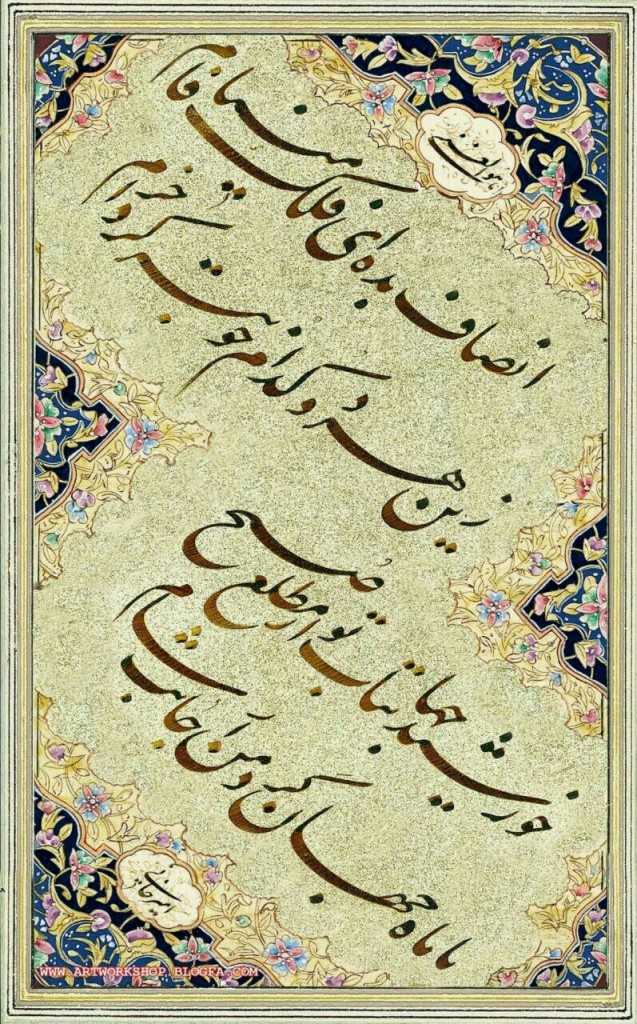 انصاف بده ای فلک مینا فام
زین هر دو کدام خوبتر کرد خرام
خورشید جهانتاب تو از مطلع صبح
یا ماه جهان گرد من از جانب شام
WWW.ARTWORKSHOP.BLOGFA.COM